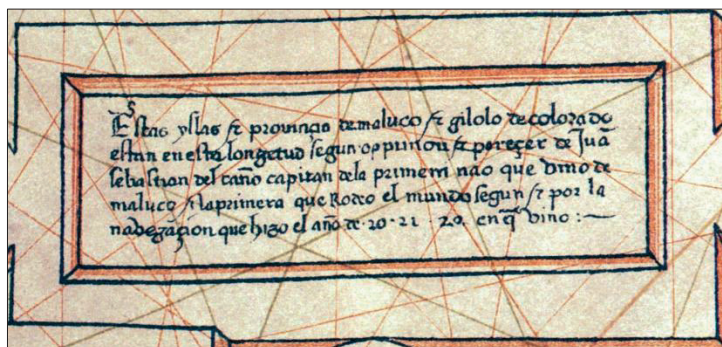 Estas yslas & provincia de maluco & gilolo de colorado
estan en esta longetud segun oppinion & pareçer de Juā
sebastian del caño capitan de la primera nao que vino de
maluco & la primera que Rodeo el mundo segun & por la
nabegaçion que hizo el año de · 20 · 21 · 22 · en q̄ vino :—